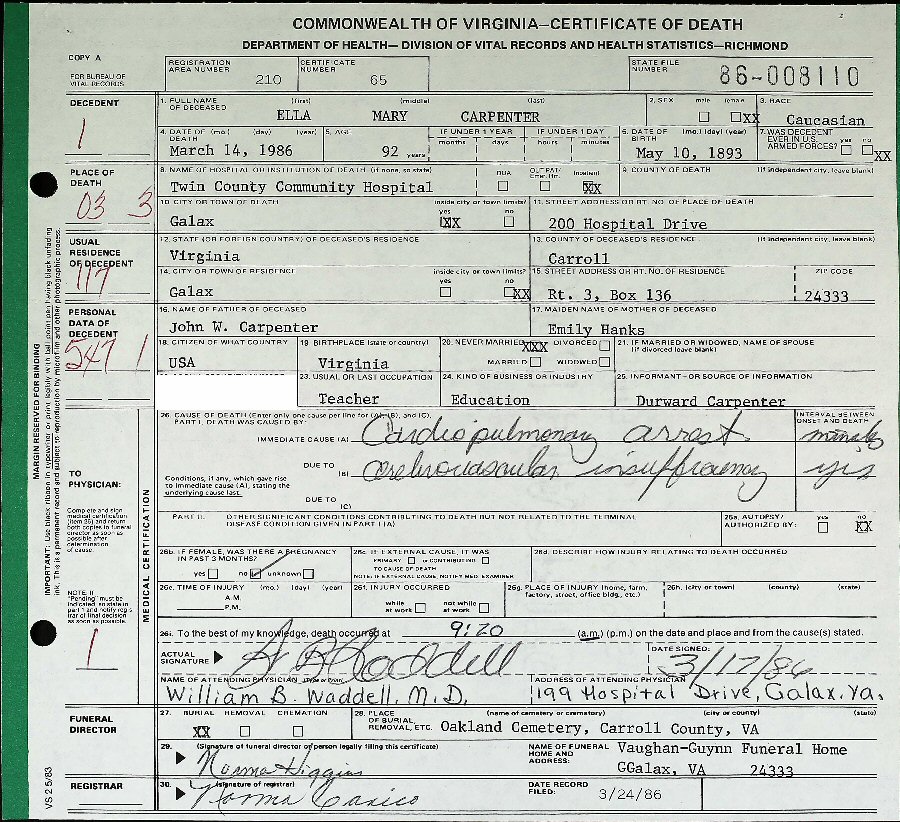 COMMONWEALTH OF VIRGINIA—CERTIFICATE OF DEATH
DEPARTMENT OF HEALTH— DIVISION OF VITAL RECORDS AND HEALTH STATISTICS—RICHMOND
COPY A
FOR BUREAU OF VITAL RECORDS
REGISTRATION AREA NUMBER 210
CERTIFICATE NUMBER 65
STATE FILE NUMBER 86-008110
DECEDENT
1
1. FULL NAME OF DECEASED (first) (middle) (last)
ELLA MARY CARPENTER
2. SEX male female XX
3. RACE Caucasian
4. DATE OF DEATH (mo.) (day) (year)
March 14, 1986
5. AGE 92 years
IF UNDER 1 YEAR months days
IF UNDER 1 DAY hours minutes
6. DATE OF BIRTH (mo.) (day) (year)
May 10, 1893
7. WAS DECEDENT EVER IN U.S. ARMED FORCES? yes no XX
PLACE OF DEATH
03 3
8. NAME OF HOSPITAL OR INSTITUTION OF DEATH (if none, so state)
Twin County Community Hospital
DOA OUTPAT/ Emer. Rm. Inpatient XX
9. COUNTY OF DEATH (If independent city, leave blank)
10. CITY OR TOWN OF DEATH inside city or town limits? yes no
Galax XX
11. STREET ADDRESS OR RT. NO. OF PLACE OF DEATH
200 Hospital Drive
USUAL RESIDENCE OF DECEDENT
117
12. STATE (OR FOREIGN COUNTRY) OF DECEASED'S RESIDENCE
Virginia
13. COUNTY OF DECEASED'S RESIDENCE (If independent city, leave blank)
Carroll
14. CITY OR TOWN OF RESIDENCE inside city or town limits? yes no
Galax XX
15. STREET ADDRESS OR RT. NO. OF RESIDENCE ZIP CODE
Rt. 3, Box 136 24333
PERSONAL DATA OF DECEDENT
547 1
16. NAME OF FATHER OF DECEASED
John W. Carpenter
17. MAIDEN NAME OF MOTHER OF DECEASED
Emily Hanks
18. CITIZEN OF WHAT COUNTRY
USA
19 BIRTHPLACE (state or country)
Virginia
20. NEVER MARRIED XXX DIVORCED
MARRIED WIDOWED
21. IF MARRIED OR WIDOWED, NAME OF SPOUSE (if divorced leave blank)
23. USUAL OR LAST OCCUPATION
Teacher
24. KIND OF BUSINESS OR INDUSTRY
Education
25. INFORMANT—OR SOURCE OF INFORMATION
Durward Carpenter
TO PHYSICIAN:
Complete and sign medical certification (item 26) and return both copies to funeral director as soon as possible after determination of cause.
NOTE: If "Pending" must be indicated, so state in part I and notify registrar of final decision as soon as possible.
1
MEDICAL CERTIFICATION
26. CAUSE OF DEATH (Enter only one cause per line for (A), (B), and (C).
PART I. DEATH WAS CAUSED BY:
INTERVAL BETWEEN ONSET AND DEATH
IMMEDIATE CAUSE (A) Cardiopulmonary arrest minutes
DUE TO (B) cerebrovascular insufficiency yrs
Conditions, if any, which gave rise to immediate cause (A), stating the underlying cause last.
DUE TO (C)
PART II. OTHER SIGNIFICANT CONDITIONS CONTRIBUTING TO DEATH BUT NOT RELATED TO THE TERMINAL DISEASE CONDITION GIVEN IN PART I (A)
26a. AUTOPSY? AUTHORIZED BY: yes no XX
26b. IF FEMALE, WAS THERE A PREGNANCY IN PAST 3 MONTHS?
yes no unknown
26c. IF EXTERNAL CAUSE, IT WAS
PRIMARY or CONTRIBUTING TO CAUSE OF DEATH
NOTE: IF EXTERNAL CAUSE, NOTIFY MED. EXAMINER
26d. DESCRIBE HOW INJURY RELATING TO DEATH OCCURRED
26e. TIME OF INJURY (mo.) (day) (year)
A.M.
P.M.
26f. INJURY OCCURRED
while at work not while at work
26g. PLACE OF INJURY (home, farm, factory, street, office bldg., etc.)
26h. (city or town) (county) (state)
26i. To the best of my knowledge, death occurred at 9:20 (a.m.) (p.m.) on the date and place and from the cause(s) stated.
ACTUAL SIGNATURE Waddell
DATE SIGNED: 3/17/86
NAME OF ATTENDING PHYSICIAN (Type or Print)
William B. Waddell, M.D.
ADDRESS OF ATTENDING PHYSICIAN
199 Hospital Drive, Galax, Va.
FUNERAL DIRECTOR
27. BURIAL REMOVAL CREMATION
XX
28. PLACE OF BURIAL, REMOVAL, ETC. (name of cemetery or crematory) (city or county) (state)
Oakland Cemetery, Carroll County, VA
29. (Signature of funeral director or person legally filing this certificate)
Norma Higgins
NAME OF FUNERAL HOME AND ADDRESS:
Vaughan-Guynn Funeral Home
GGalax, VA 24333
REGISTRAR
30. (signature of registrar)
Norma
DATE RECORD FILED: 3/24/86
VS 2 5/83
MARGIN RESERVED FOR BINDING
IMPORTANT: Use black ribbon in typewriter or print legibly with ball point pen having black unfading
ink. This is a permanent record and subject to reproduction by microfilm and other photographic process.